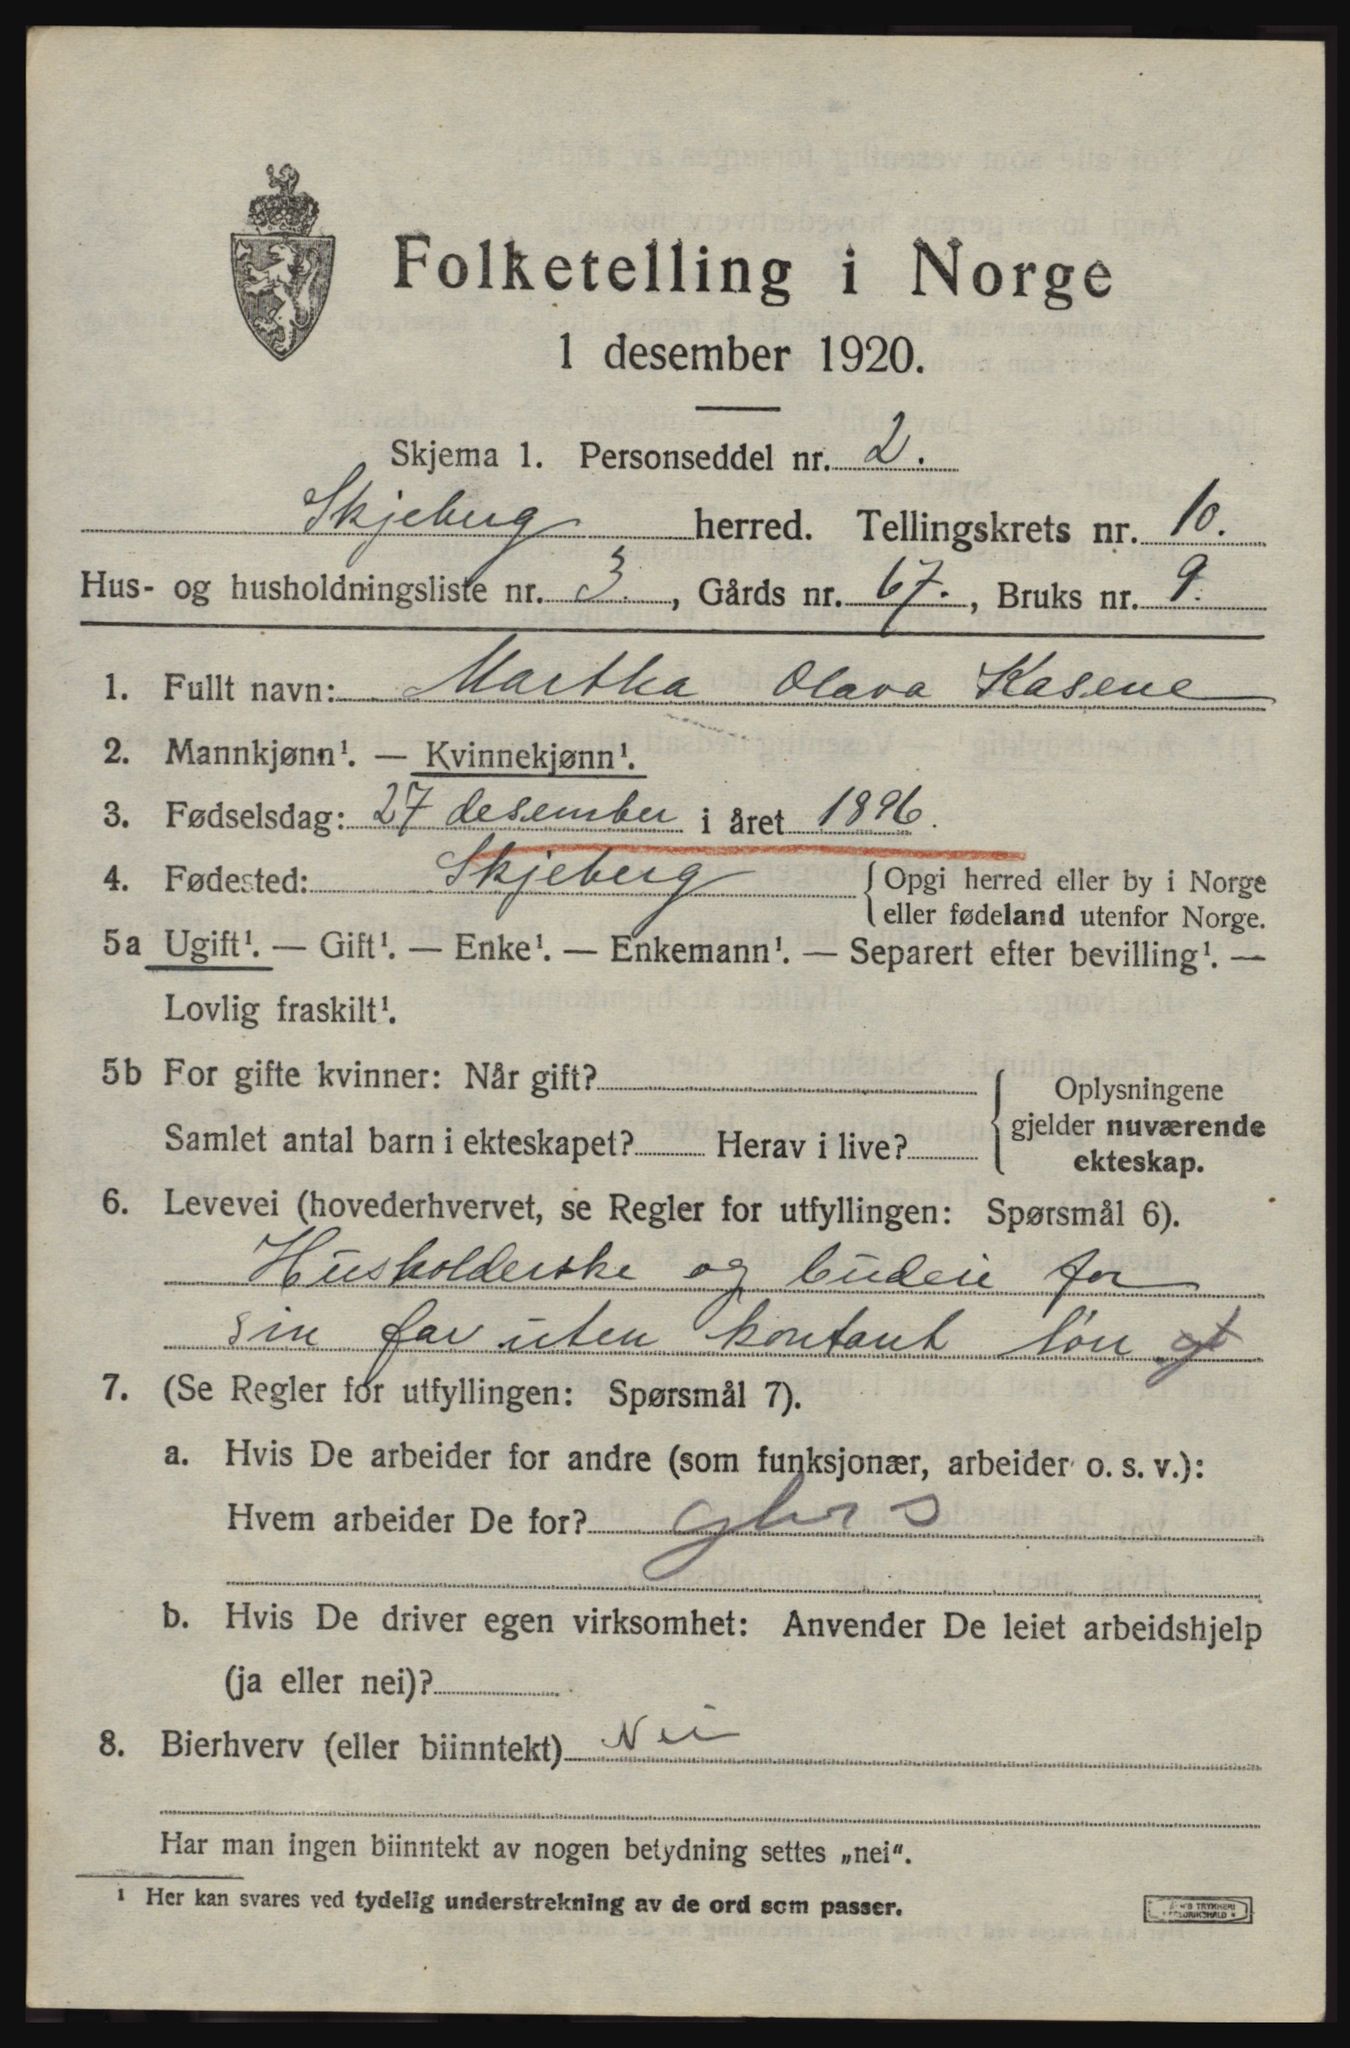 Folketelling i Norge
1 desember 1920.
Skjema 1. Personseddel nr. 2.
Skjeberg herred. Tellingskrets nr. 10.
Hus- og husholdningsliste nr. 3, Gårds nr. 67., Bruks nr. 9.
1. Fullt navn: Martha Olava Kasene
2. Mannkjønn¹. — Kvinnekjønn¹.
3. Fødselsdag: 27 desember i året 1896.
4. Fødested: Skjeberg { Opgi herred eller by i Norge
eller fødeland utenfor Norge.
5a Ugift¹. — Gift¹. — Enke¹. — Enkemann¹. — Separert efter bevilling¹. —
Lovlig fraskilt¹.
5b For gifte kvinner: Når gift?
Samlet antal barn i ekteskapet? Herav i live?
Oplysningene
gjelder nuværende
ekteskap.
6. Levevei (hovederhvervet, se Regler for utfyllingen: Spørsmål 6).
Husholderske og budeie for
sin far uten kontant løn
7. (Se Regler for utfyllingen: Spørsmål 7).
a. Hvis De arbeider for andre (som funksjonær, arbeider o. s. v.):
Hvem arbeider De for?
b. Hvis De driver egen virksomhet: Anvender De leiet arbeidshjelp
(ja eller nei)?
8. Bierhverv (eller biinntekt) Nei
Har man ingen biinntekt av nogen betydning settes „nei“.
¹ Her kan svares ved tydelig understrekning av de ord som passer.